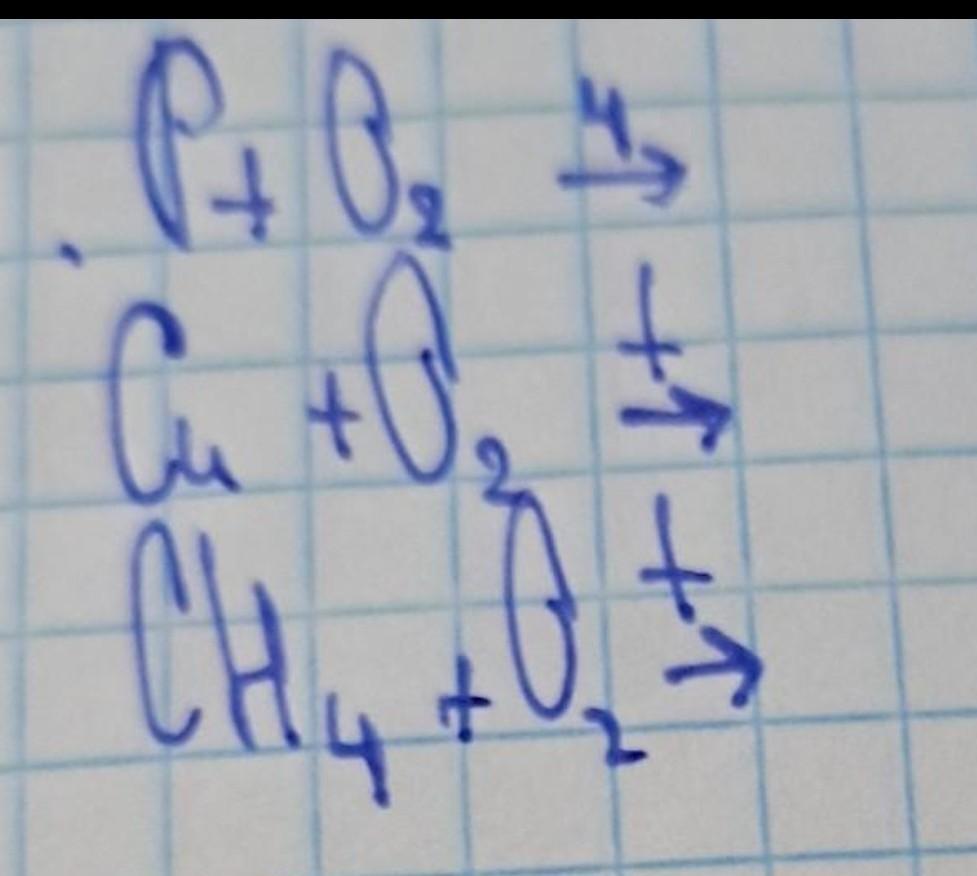 P + O₂ 4→
Cu + O₂ t→
CH₄ + O₂ t→